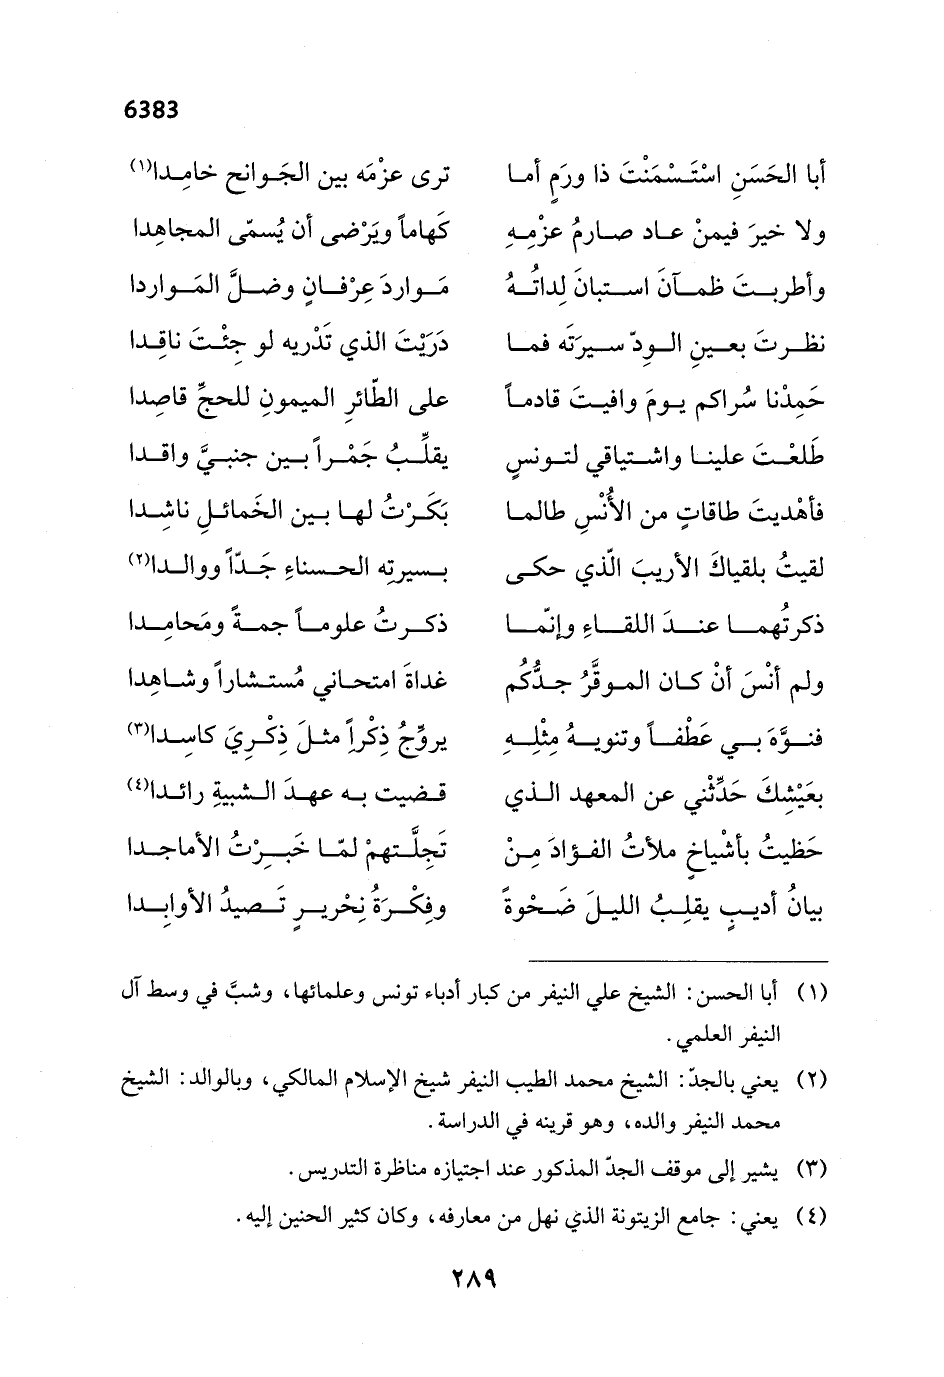 6383
أبا الحَسَنِ اسْتَسْمَنْتَ ذا ورَمٍ أمـا ترى عزْمَه بين الجَوانح خامِدا(١)
ولا خيرَ فيمنْ عـاد صـارمُ عزْمِـهِ كَهاماً ويَرْضى أن يُسمّى المجاهِدا
وأطربـتَ ظمـآنَ اسـتبانَ لِداتُـهُ مَـواردَ عِرْفـانٍ وضـلَّ المَـواردا
نظـرتَ بعـينِ الـودّ سـيرَتَه فمـا دَرَيْتَ الذي تَدْريه لو جِئْتَ ناقِدا
حَمِدْنا سُراكم يـومَ وافيـتَ قادمـاً على الطّائرِ الميمونِ للحجِّ قاصِدا
طَلَعْـتَ علينـا واشـتياقي لتـونسٍ يقلّـبُ جَمْـراً بـين جنبـيَّ واقـدا
فأهْديتَ طاقاتٍ من الأُنْسِ طالمـا بَكَـرْتُ لهـا بـين الخَمائـلِ ناشِـدا
لقيتُ بلقياكَ الأريبَ الّذي حكـى بـسيرتِه الحـسناءِ جَـدّاً ووالـدا(٢)
ذكرتُهمـا عنـدَ اللقـاءِ وإنّمـا ذكـرتُ علومـاً جمـةً ومَحامِـدا
ولم أنْسَ أنْ كـان المـوقَّرُ جـدُّكُم غداةَ امتحـاني مُـستـشاراً وشـاهِدا
فنـوَّهَ بـي عَطْفـاً وتنويـهُ مِثْلِـهِ يروِّجُ ذِكْراً مثـلَ ذِكْريَ كاسِـدا(٣)
بعَيْشِكَ حَدِّثْني عن المعهد الـذي قـضيت بـه عهـدَ الـشبيةِ رائـدا(٤)
حَظيتُ بأشْياخٍ ملأتُ الفـؤادَ مِـنْ تَجِلَّـتهمْ لمّـا خَبِـرْتُ الأماجـدا
بيانُ أديـبٍ يقلِـبُ الليـلَ ضَـحْوةً وفِكْـرَةُ نِحْريـرٍ تَـصيدُ الأوابِـدا
(١) أبا الحسن: الشيخ علي النيفر من كبار أدباء تونس وعلمائها، وشبَّ في وسط آل
النيفر العلمي.
(٢) يعني بالجدّ: الشيخ محمد الطيب النيفر شيخ الإسلام المالكي، وبالوالد: الشيخ
محمد النيفر والده، وهو قرينه في الدراسة.
(٣) يشير إلى موقف الجدّ المذكور عند اجتيازه مناظرة التدريس.
(٤) يعني: جامع الزيتونة الذي نهل من معارفه، وكان كثير الحنين إليه.
٢٨٩